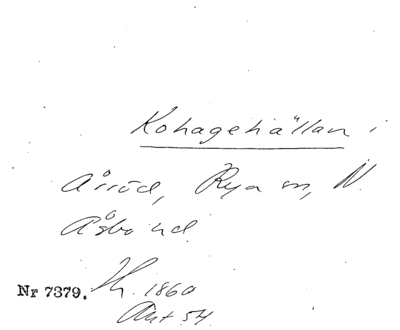 Kohagehällan i
Åröd, Rya sn, N.
Åsbo hd
Nr 7379. H. 1860
Ant 54